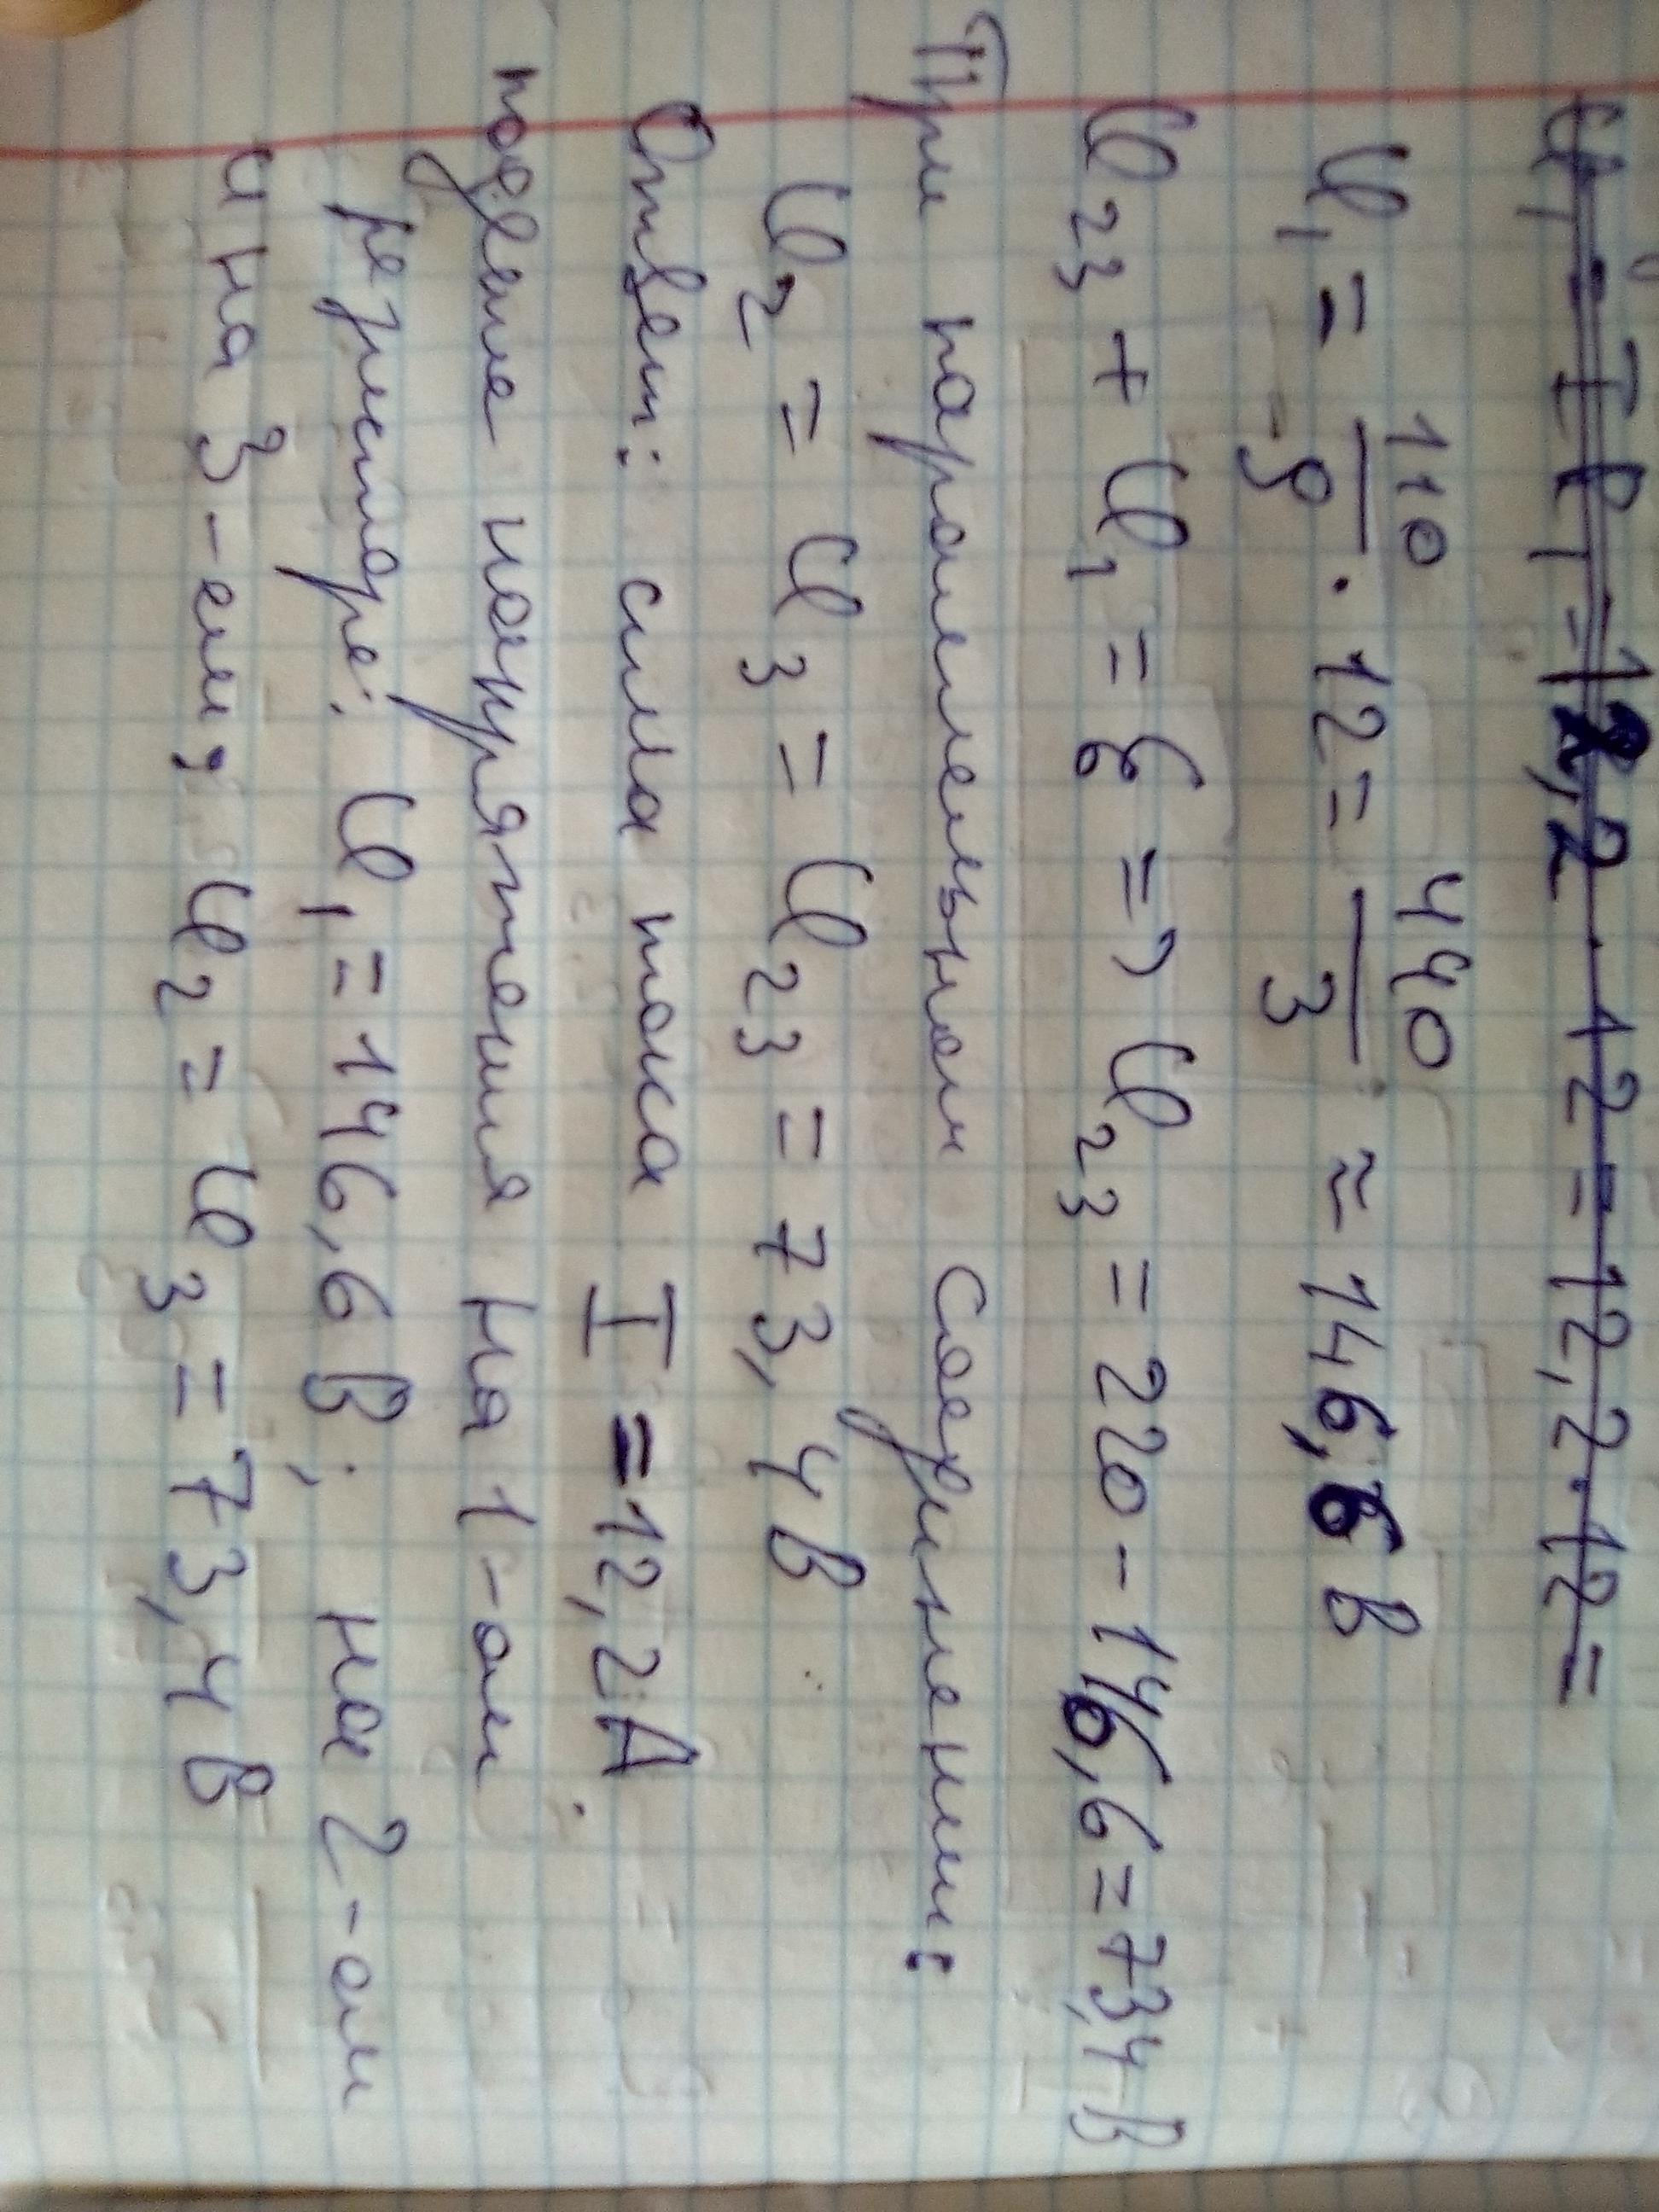 U₁ = I R₁ = 12,2 · 12 = 12,2 · 12 =
U₁ = 110/9 · 12 = 440/3 ≈ 146,6 В
U₂₃ + U₁ = ℰ => U₂₃ = 220 - 146,6 = 73,4 В
При паралельном соединении:
U₂ = U₃ = U₂₃ = 73,4 В
Ответ: сила тока I = 12,2 А.
подение напряжения на 1-ом
резисторе: U₁ = 146,6 В; на 2-ом
и на 3-ем: U₂ = U₃ = 73,4 В